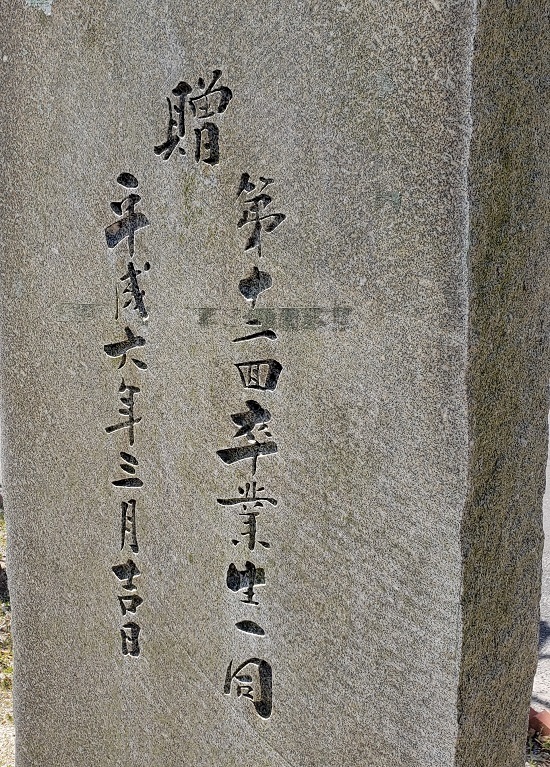 贈
第十二回卒業生一同
平成六年三月吉日